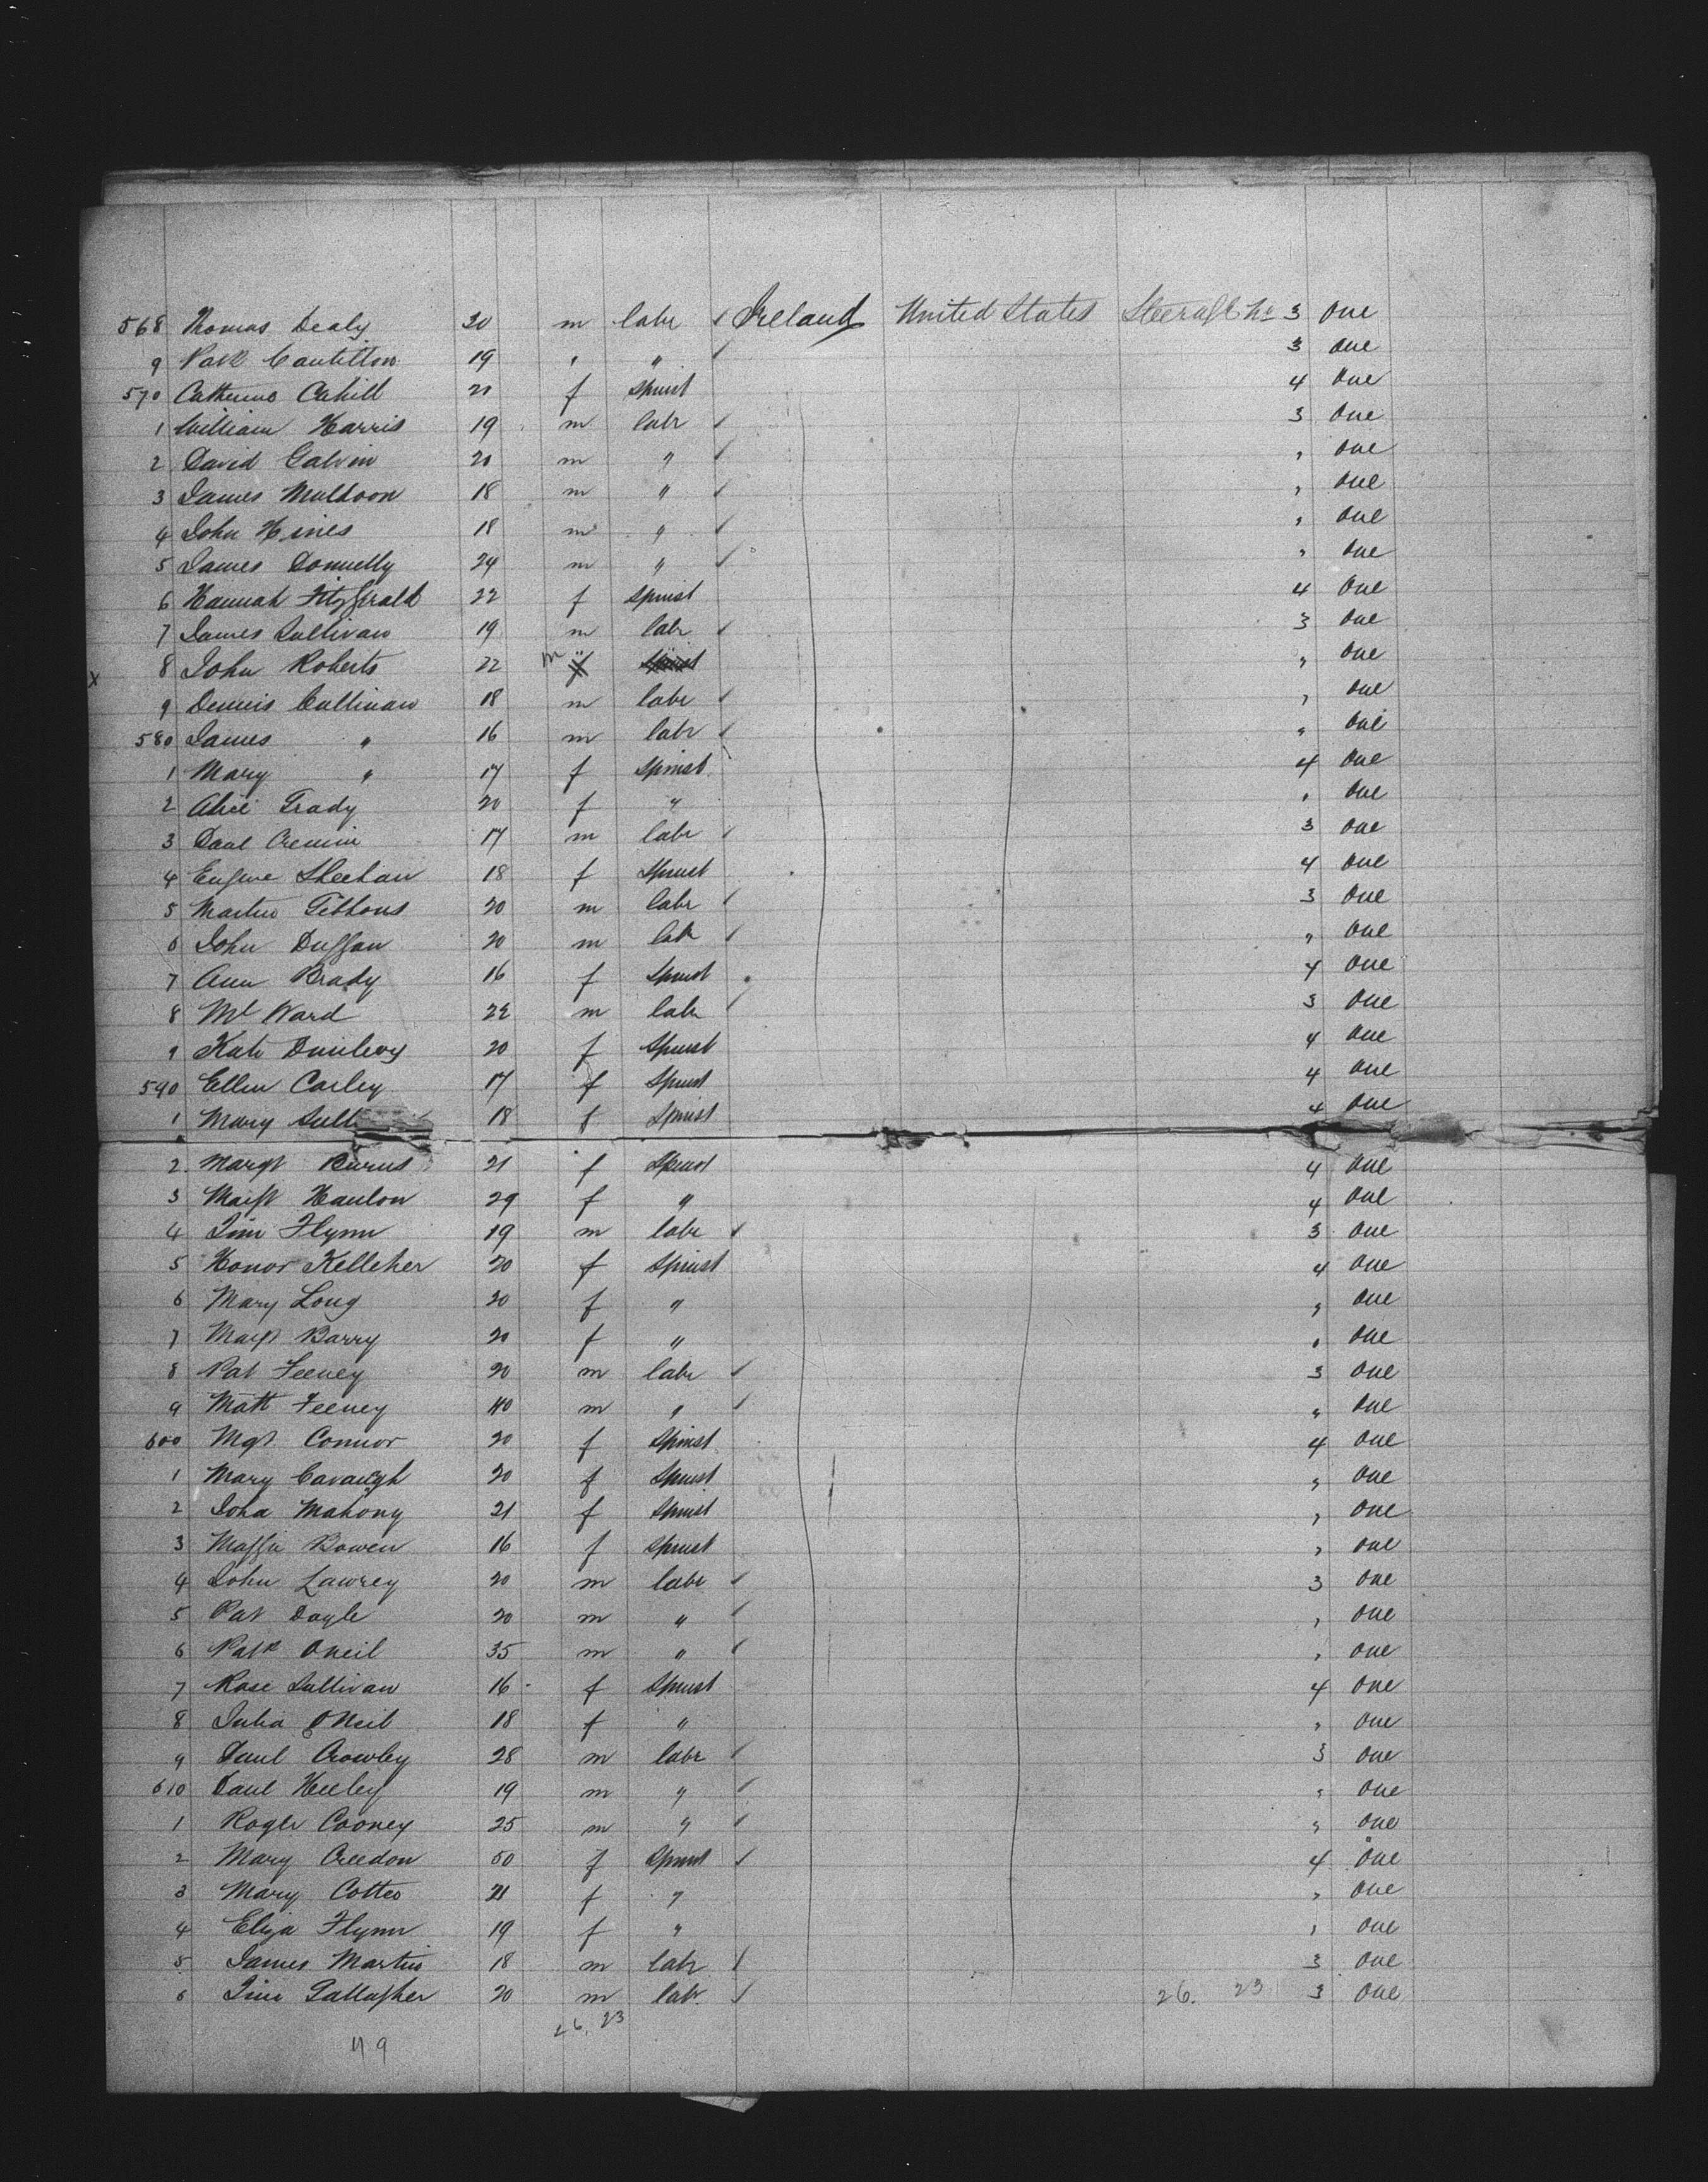 568 Thomas Dealy 20 m labr ✓ Ireland United States Steerage No 3 One
9 Patk Cantillon 19 " " ✓ 3 One
570 Catherine Cahill 21 f Spinst 4 One
1 William Harris 19 m labr ✓ 3 One
2 David Galvin 20 m " ✓ " One
3 James Muldoon 18 m " ✓ " One
4 John Hines 18 m " ✓ " One
5 James Donnelly 24 m " ✓ " One
6 Hannah Fitzgerald 22 f Spinst 4 One
7 James Sullivan 19 m labr ✓ 3 One
x 8 John Roberts 22 m " One
9 Dennis Cullinan 18 m labr ✓ " One
580 James " 16 m labr ✓ " One
1 Mary " 17 f Spinst 4 One
2 Alice Grady 20 f " " One
3 Danl Cremin 17 m labr ✓ 3 One
4 Eugene Sheehan 18 f Spinst 4 One
5 Martin Gibbons 20 m labr ✓ 3 One
6 John Duggan 20 m labr ✓ " One
7 Ann Brady 16 f Spinst 4 One
8 Ml Ward 22 m labr ✓ 3 One
9 Kate Dunlevy 20 f Spinst 4 One
590 Ellen Carley 17 f Spinst 4 One
1 Mary Sull 18 f Spinst 4 One
2 Margt Burns 21 f Spinst 4 One
3 Margt Hanlon 29 f " 4 One
4 Tim Flynn 19 m labr ✓ 3 One
5 Honor Kelleher 20 f Spinst 4 One
6 Mary Long 20 f " " One
7 Margt Barry 20 f " " One
8 Pat Feeney 20 m labr ✓ 3 One
9 Matt Feeney 40 m " ✓ " One
600 Mgt Connor 20 f Spinst 4 One
1 Mary Cavangh 20 f Spinst " One
2 Joha Mahony 21 f Spinst " One
3 Maggie Bowen 16 f Spinst " One
4 John Lawrey 20 m labr ✓ 3 One
5 Pat Doyle 20 m " ✓ " One
6 Patk Oneil 35 m " ✓ " One
7 Rose Sullivan 16 f Spinst 4 One
8 Julia O'Neil 18 f " " One
9 Danl Crowley 28 m labr ✓ 3 One
610 Danl Heeley 19 m " ✓ " One
1 Roger Cooney 25 m " ✓ " One
2 Mary Creedon 50 f Spinst ✓ 4 One
3 Mary Cotter 21 f " " One
4 Eliza Flynn 19 f " " One
5 James Martin 18 m labr ✓ 3 One
6 Tim Gallagher 20 m labr ✓ 26. 23 3 One
26. 23
49